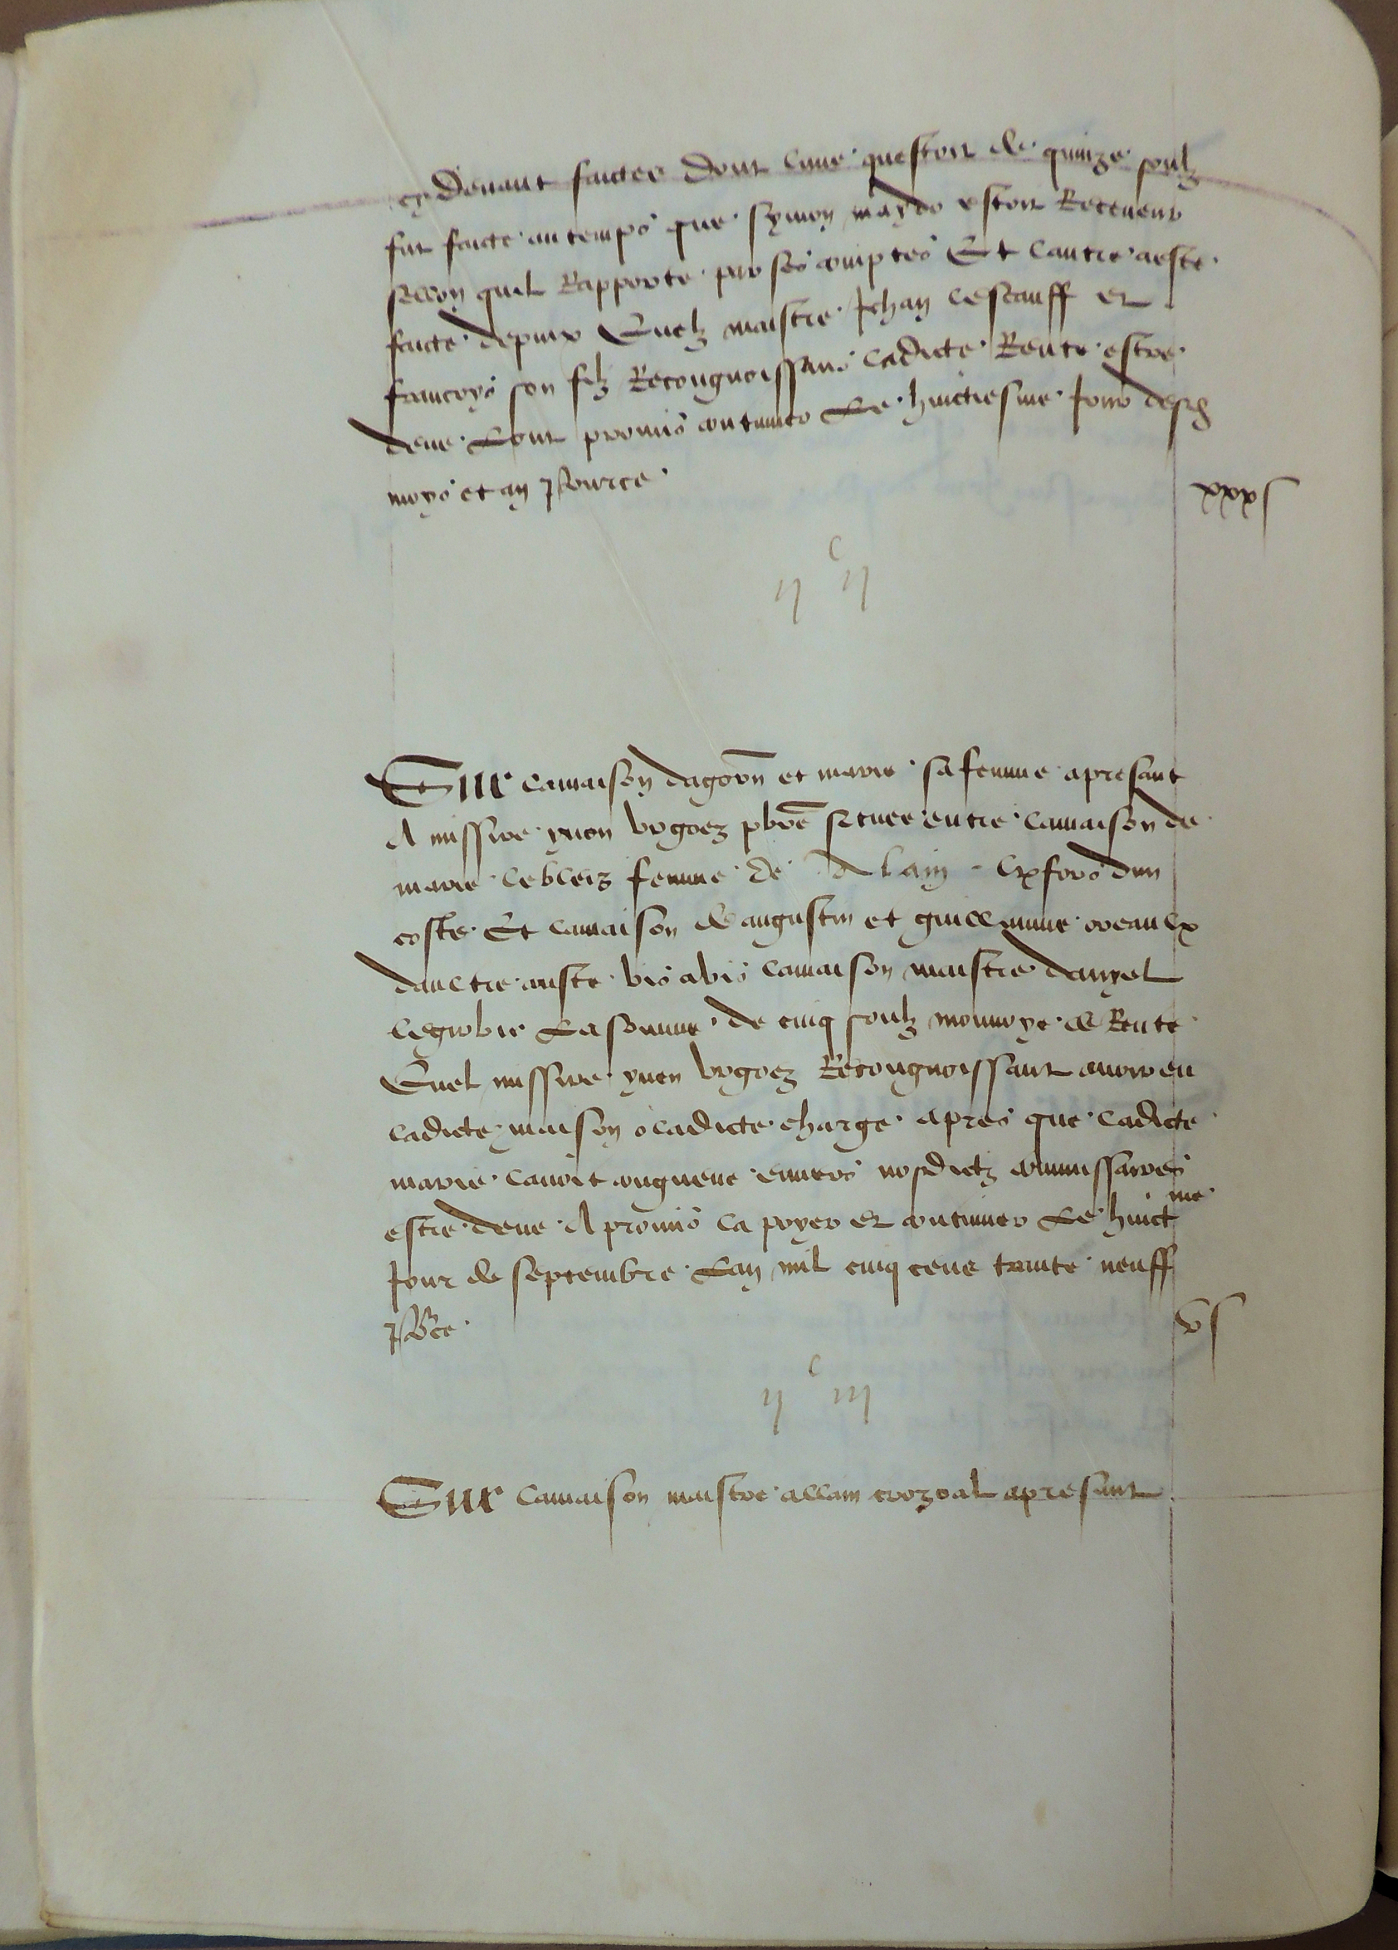 cy devant faictes dont lune questoit de quinze soulz
fut faicte au temps que symon maydo estoit Receveur
sellon quil Rapporte par ses comptes Et lautre a este
faicte depuix Quelz maistre Jehan lescauff et
francoys son filz Recongnoissans ladicte Rente estre
deue Lont promis continuer Le huictiesme Jour desd
moys et an
xxx s
ii c ii
Sur lamaison dagorn et marie sa femme apresant
A missire yvon bzgoez pbre situee entre lamaison de
marie lebleiz femme de Alain dun
coste Et lamaison de augustin et guillemme
daultre couste vis avis lamaison maistre danyel
legrobie La somme de cinq soulz monnoye de Rente
Quel missire yvon bzgoez Recongnoissant avoir eu
ladicte maison o ladicte charge apres que ladicte
marie lavoit congneue envers nosdictz commissaires
estre deue A promis la poyer et continuer Le huict me
Jour de septembre Lan mil cinq cens trante neuff
v s
ii c iii
Sur lamaison maistre allain crozoal apresant